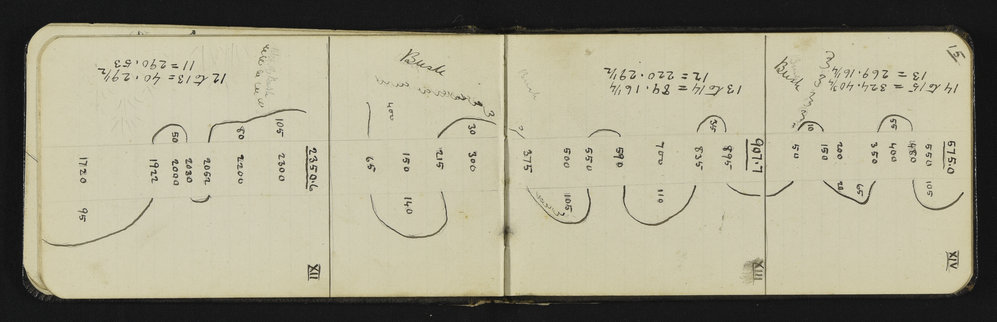 15
14 to 15 = 324.40 3/4
13 = 269.16 1/4
675.0
XIV
550 105
480
55 400
350 65
200 20
150
10 50
Bush
13 to 14 = 89.16 1/4
12 = 220.29 1/2
907.7
XIII
895
35 835
700 110
590
550
500 105
375
Bush
30 300
1215
150 140
400 65
12 to 13 = 40.29 1/2
11 = 290.53
2350.6
XII
105 2300
80 2200
2052
2030
50 2000
1922
1720 95